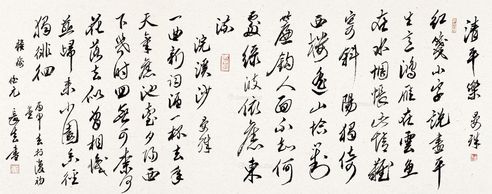 清平樂 晏殊
紅箋小字說盡平
生意鴻雁在雲魚
在水惆悵此情難
寄斜陽獨倚
西樓遙山恰對
簾鉤人面不知何
處綠波依舊東
流
浣溪沙 晏殊
一曲新詞酒一杯去年
天氣舊池臺夕陽西
下幾時回無可奈何
花落去似曾相識
燕歸來小園香徑
獨徘徊
丙申